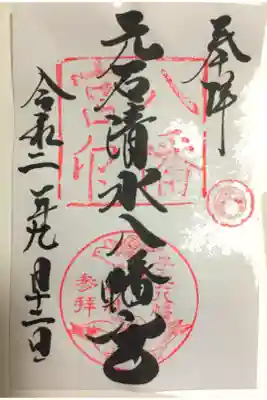 奉拝
元石清水八幡宮
令和二年九月十二日
参拝